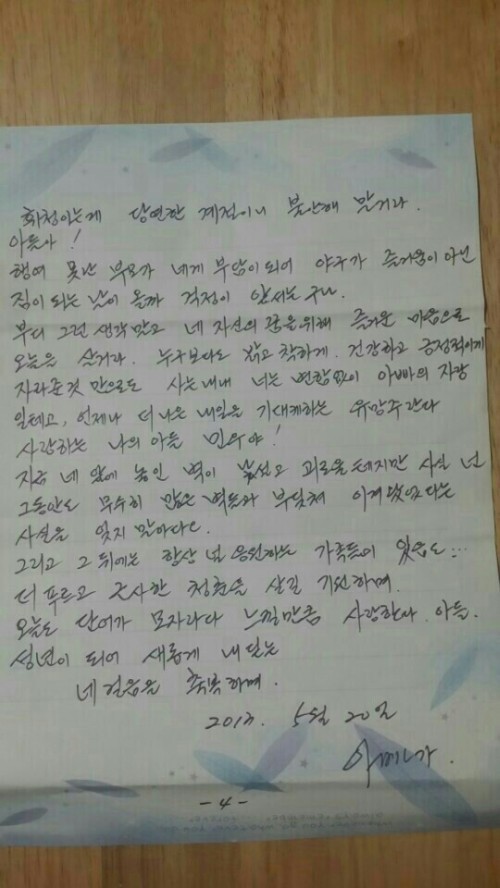 화청이는게 당연한 계절이니 불안해 말거라.
아들아!
행여 못난 부모가 네게 부담이되어 야구가 즐거움이 아닌
짐이 되는 날이 올까 걱정이 앞서는구나.
부디 그런 생각말고 네 자신의 꿈을 위해 즐거운 마음으로
오늘을 살거라. 누구보다도 밝고 착하게. 건강하고 긍정적이게
자라준것 만으로도 사는내내 너는 변함없이 아빠의 자랑
일테고, 언제나 더 나은 내일을 기대케하는 유망주란다
사랑하는 나의 아들 민우야!
지금 네 앞에 놓인 벽이 낯설고 괴로울테지만 사실 넌
그동안도 무수히 많은 벽들과 부딪쳐 이겨왔었다는
사실을 잊지말아다오.
그리고 그 뒤에는 항상 널 응원하는 가족들이 있음도…
더 푸르고 근사한 청춘을 살길 기원하며.
오늘도 단어가 모자라다 느낄만큼 사랑한다. 아들.
성년이 되어 새롭게 내딛는
네 걸음을 축복하며.
2013. 5월 20일
-4-